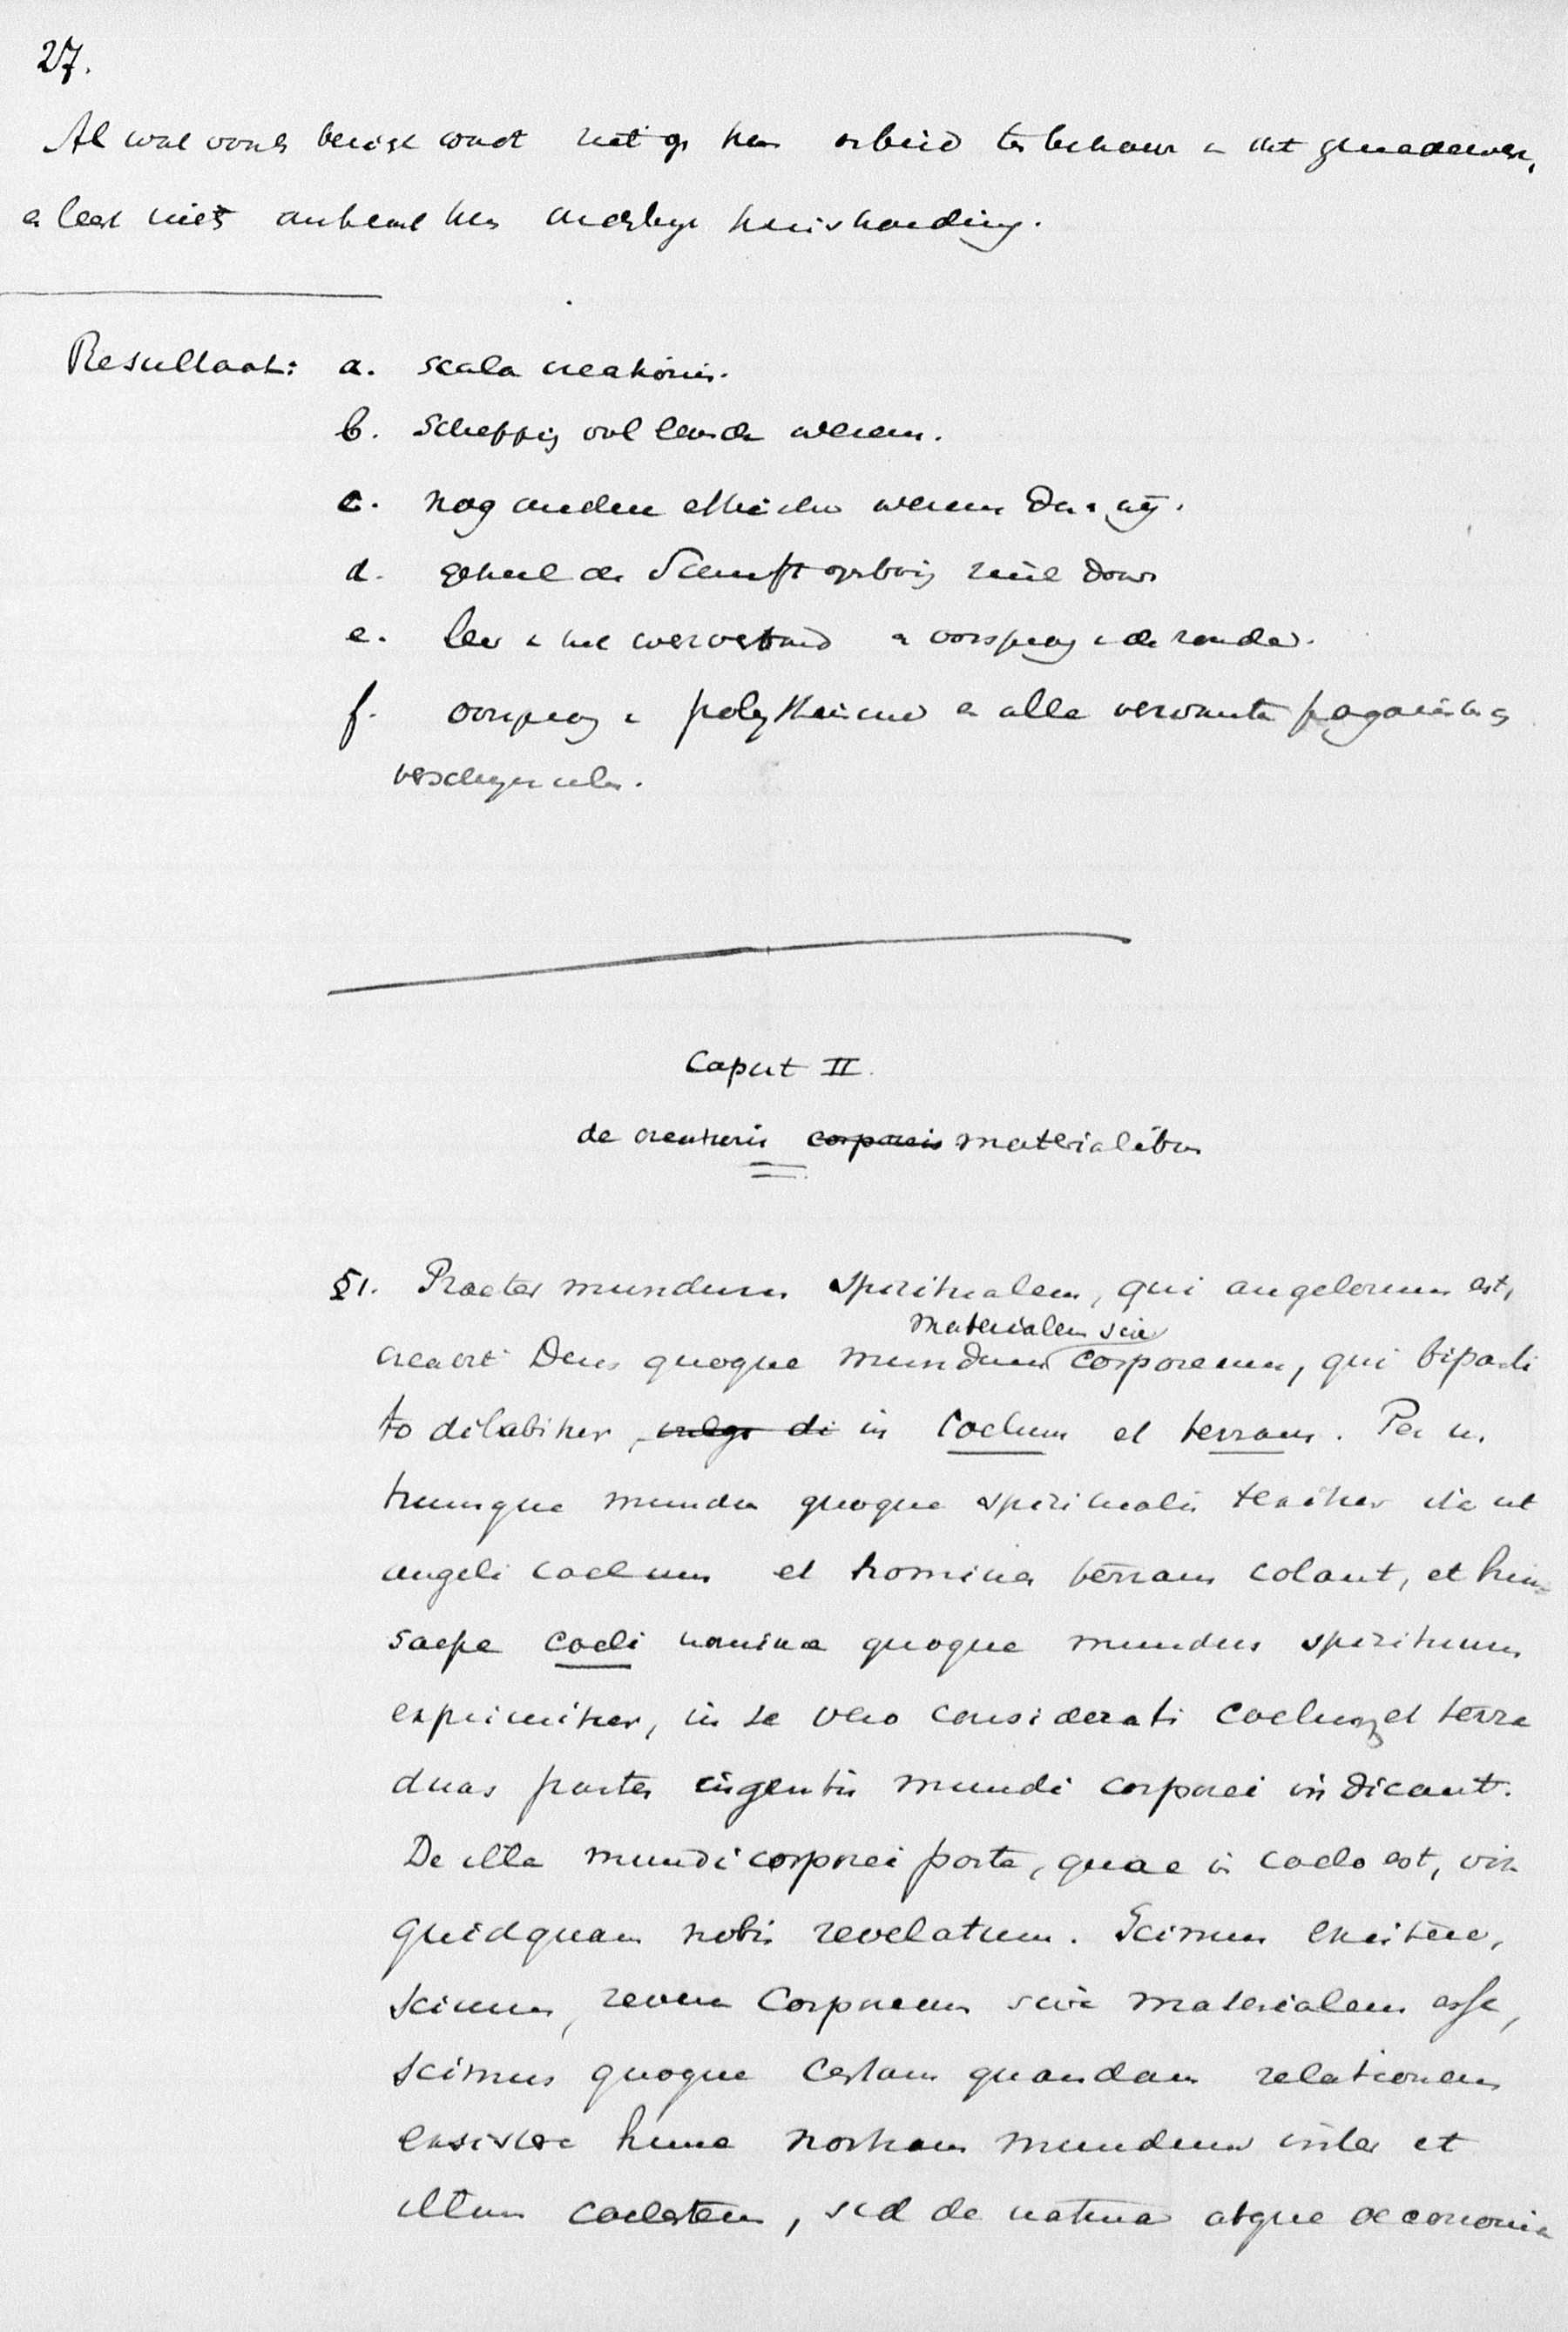 27.
Al wat voorts bericht wordt ziet op hun arbeid ten behoeve v. het genadewerk,
en leert niets omtrent hun onderlinge huishouding.
Resultaat: a. scala creationis.
b. Schepping vol levende wezens.
c. nog andere ethische wezens dan wij.
d. geheel de Schrift openbaring
e. leer v. het werkverbond en oorsprong v. de zonde.
f. oorsprong v. polytheisme en alle verwante paganistische
verschijnselen.
Caput II.
de creaturis corporeis materialibus
§1. Praeter mundum spiritualem, qui angelorum est,
materialem sive
creavit Deus quoque mundum corporeum, qui biparti
to dilabitur, vulgo di in Coelum et terram. Per u.
trumque mundus quoque spiritualis tenditur ita ut
angeli coelum et homines terram colant, et hinc
saepe coeli nomine quoque mundus spirituum
exprimitur, in se vero considerati coelum et terra
duas partes ingentis mundi corporei indicant.
De illa mundi corporei parte, quae in coelo est, vix
quidquam nobis revelatum. Scimus existere,
scimus, revera corporeum sive materialem esse,
scimus quoque certam quandam relationem
existere hunc nostrum mundum inter et
illum coelestem, sed de natura atque oeconomia